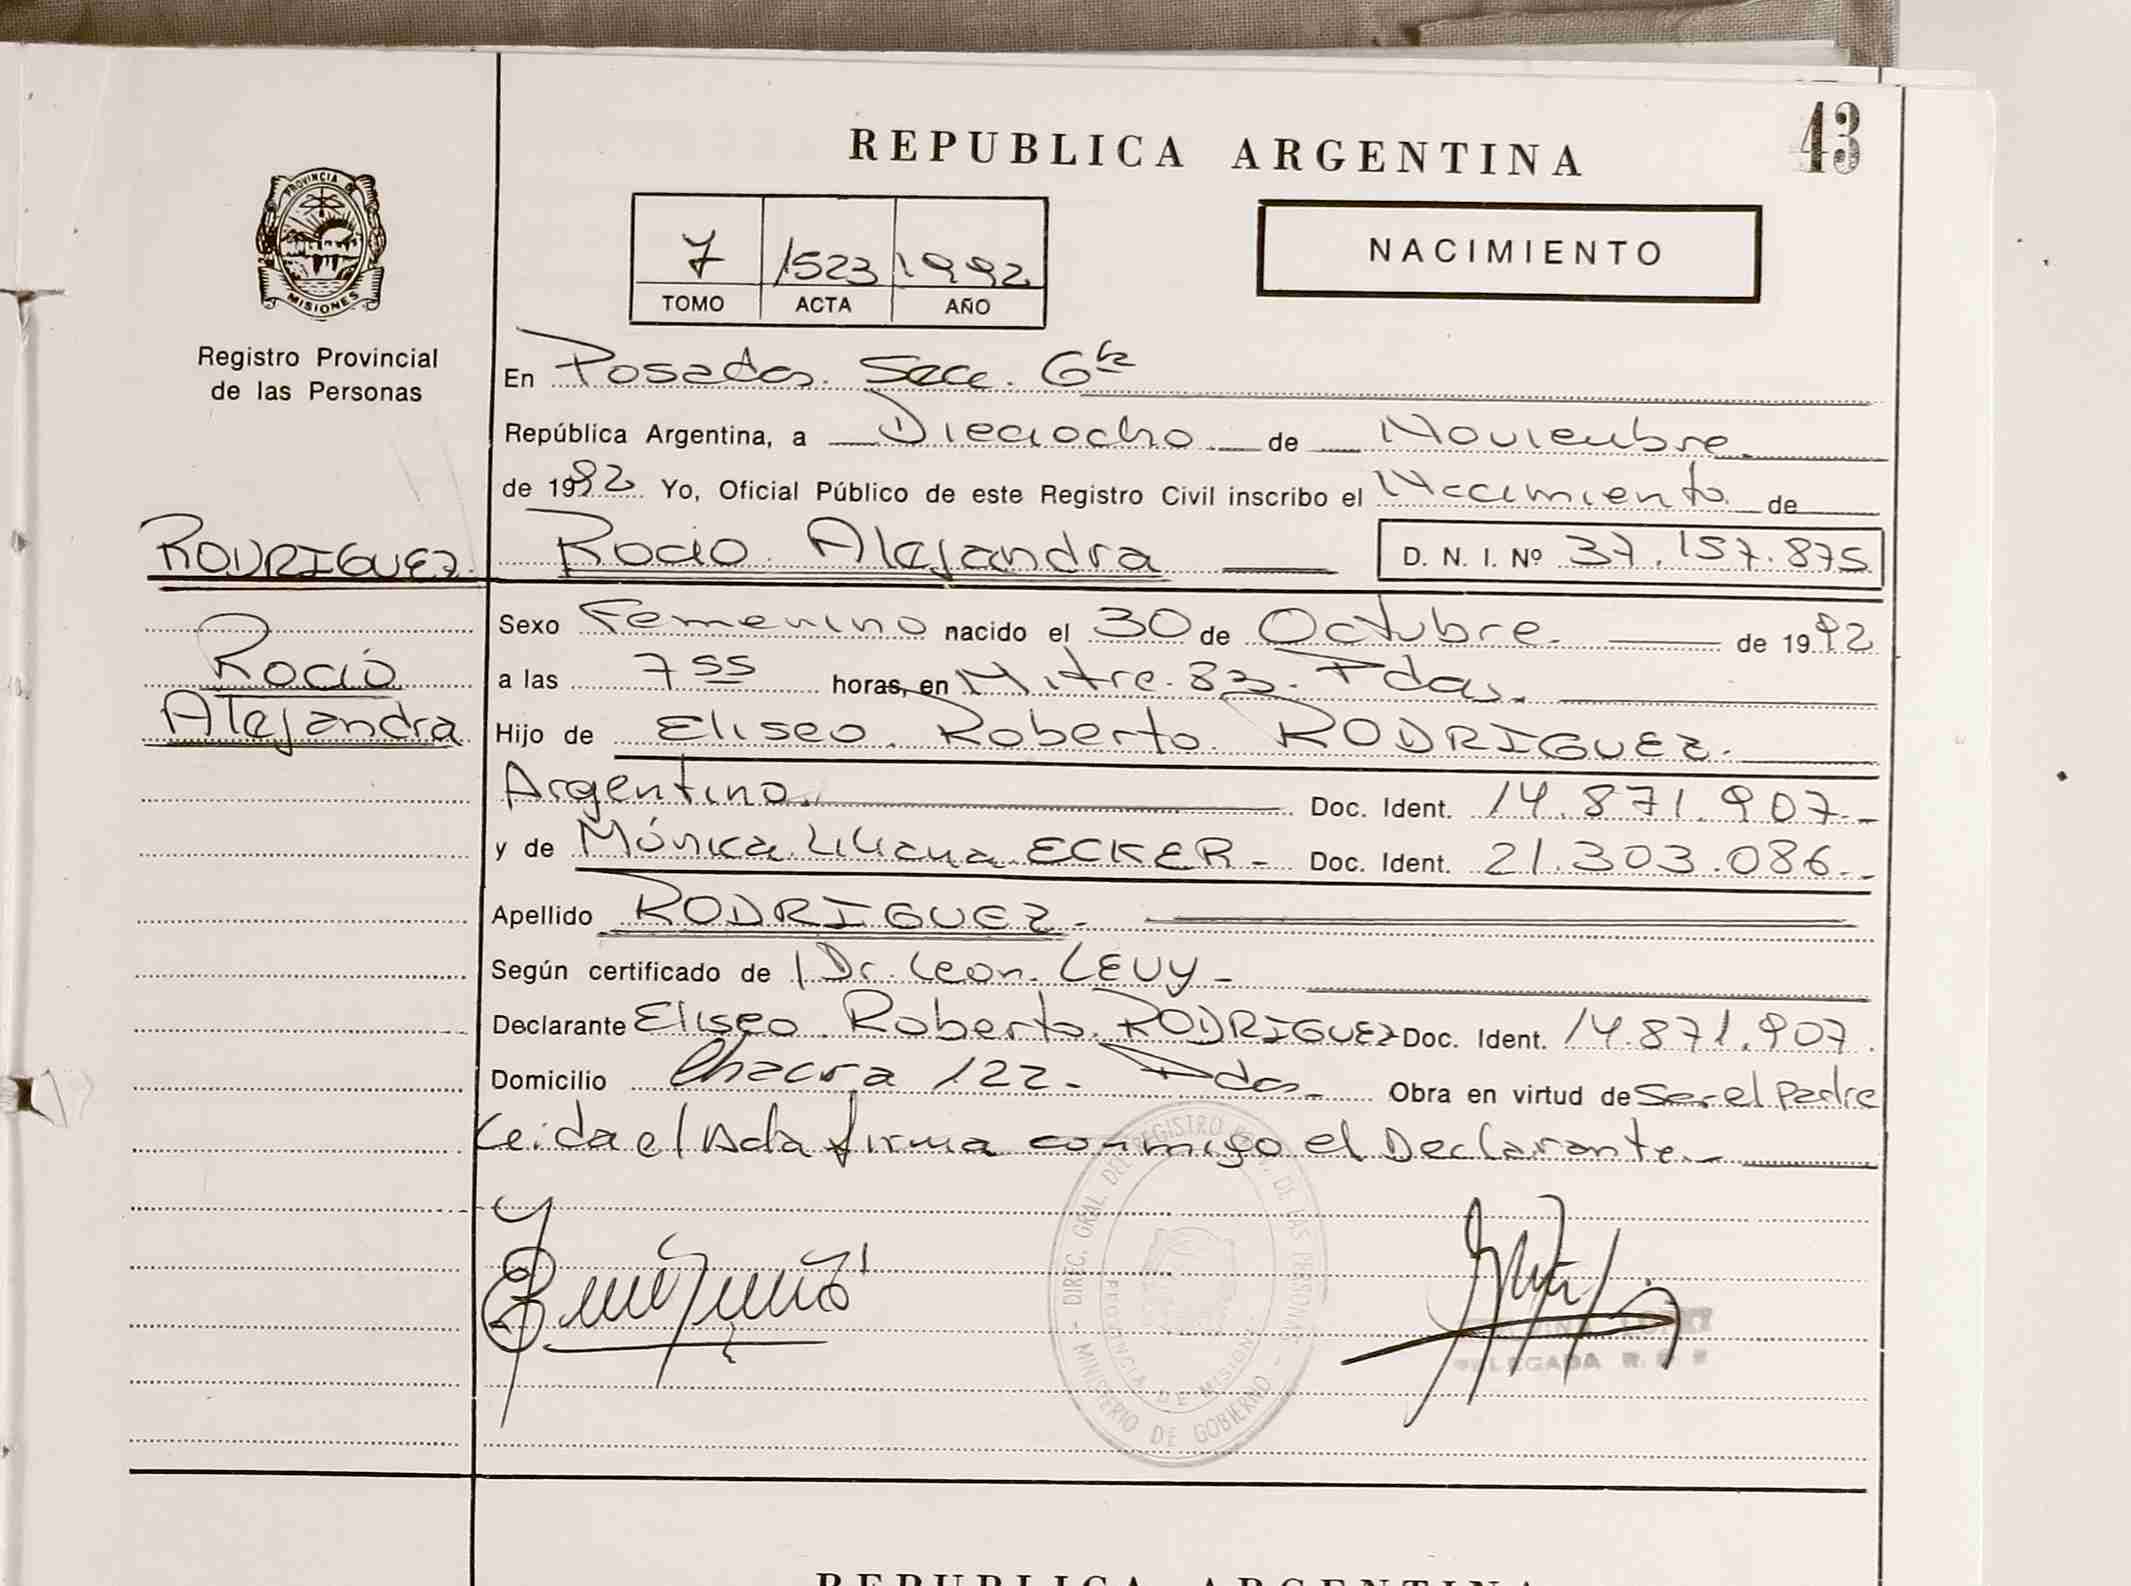 43
REPUBLICA ARGENTINA
PROVINCIA DE
MISIONES
Registro Provincial
de las Personas
7 1523 1992
TOMO ACTA AÑO
NACIMIENTO
En Posadas. Secc. 6ta
República Argentina, a Dieciocho de Noviembre
de 1992 Yo, Oficial Público de este Registro Civil inscribo el Nacimiento de
RODRIGUEZ. Rocio Alejandra D. N. I. Nº 37.157.875
Sexo Femenino nacido el 30 de Octubre de 1992
Roció
a las 7 55 horas, en Mitre. 83. Pdas.
Alejandra
Hijo de Eliseo Roberto RODRIGUEZ.
Argentino. Doc. Ident. 14.871.907.-
y de Mónica Liliana ECKER - Doc. Ident. 21.303.086.-
Apellido RODRIGUEZ-
Según certificado de Dr. Leon LEVY-
Declarante Eliseo Roberto RODRIGUEZ Doc. Ident. 14.871.907.
Domicilio Chacra 122- Pdas- Obra en virtud de Ser el Padre
Leida el Acta firma conmigo el Declarante-
DIREC. GRAL. DEL REGISTRO DE LAS PERSONAS
MINISTERIO DE GOBIERNO
PROVINCIA DE MISIONES
DELEGADA
REPUBLICA ARGENTINA